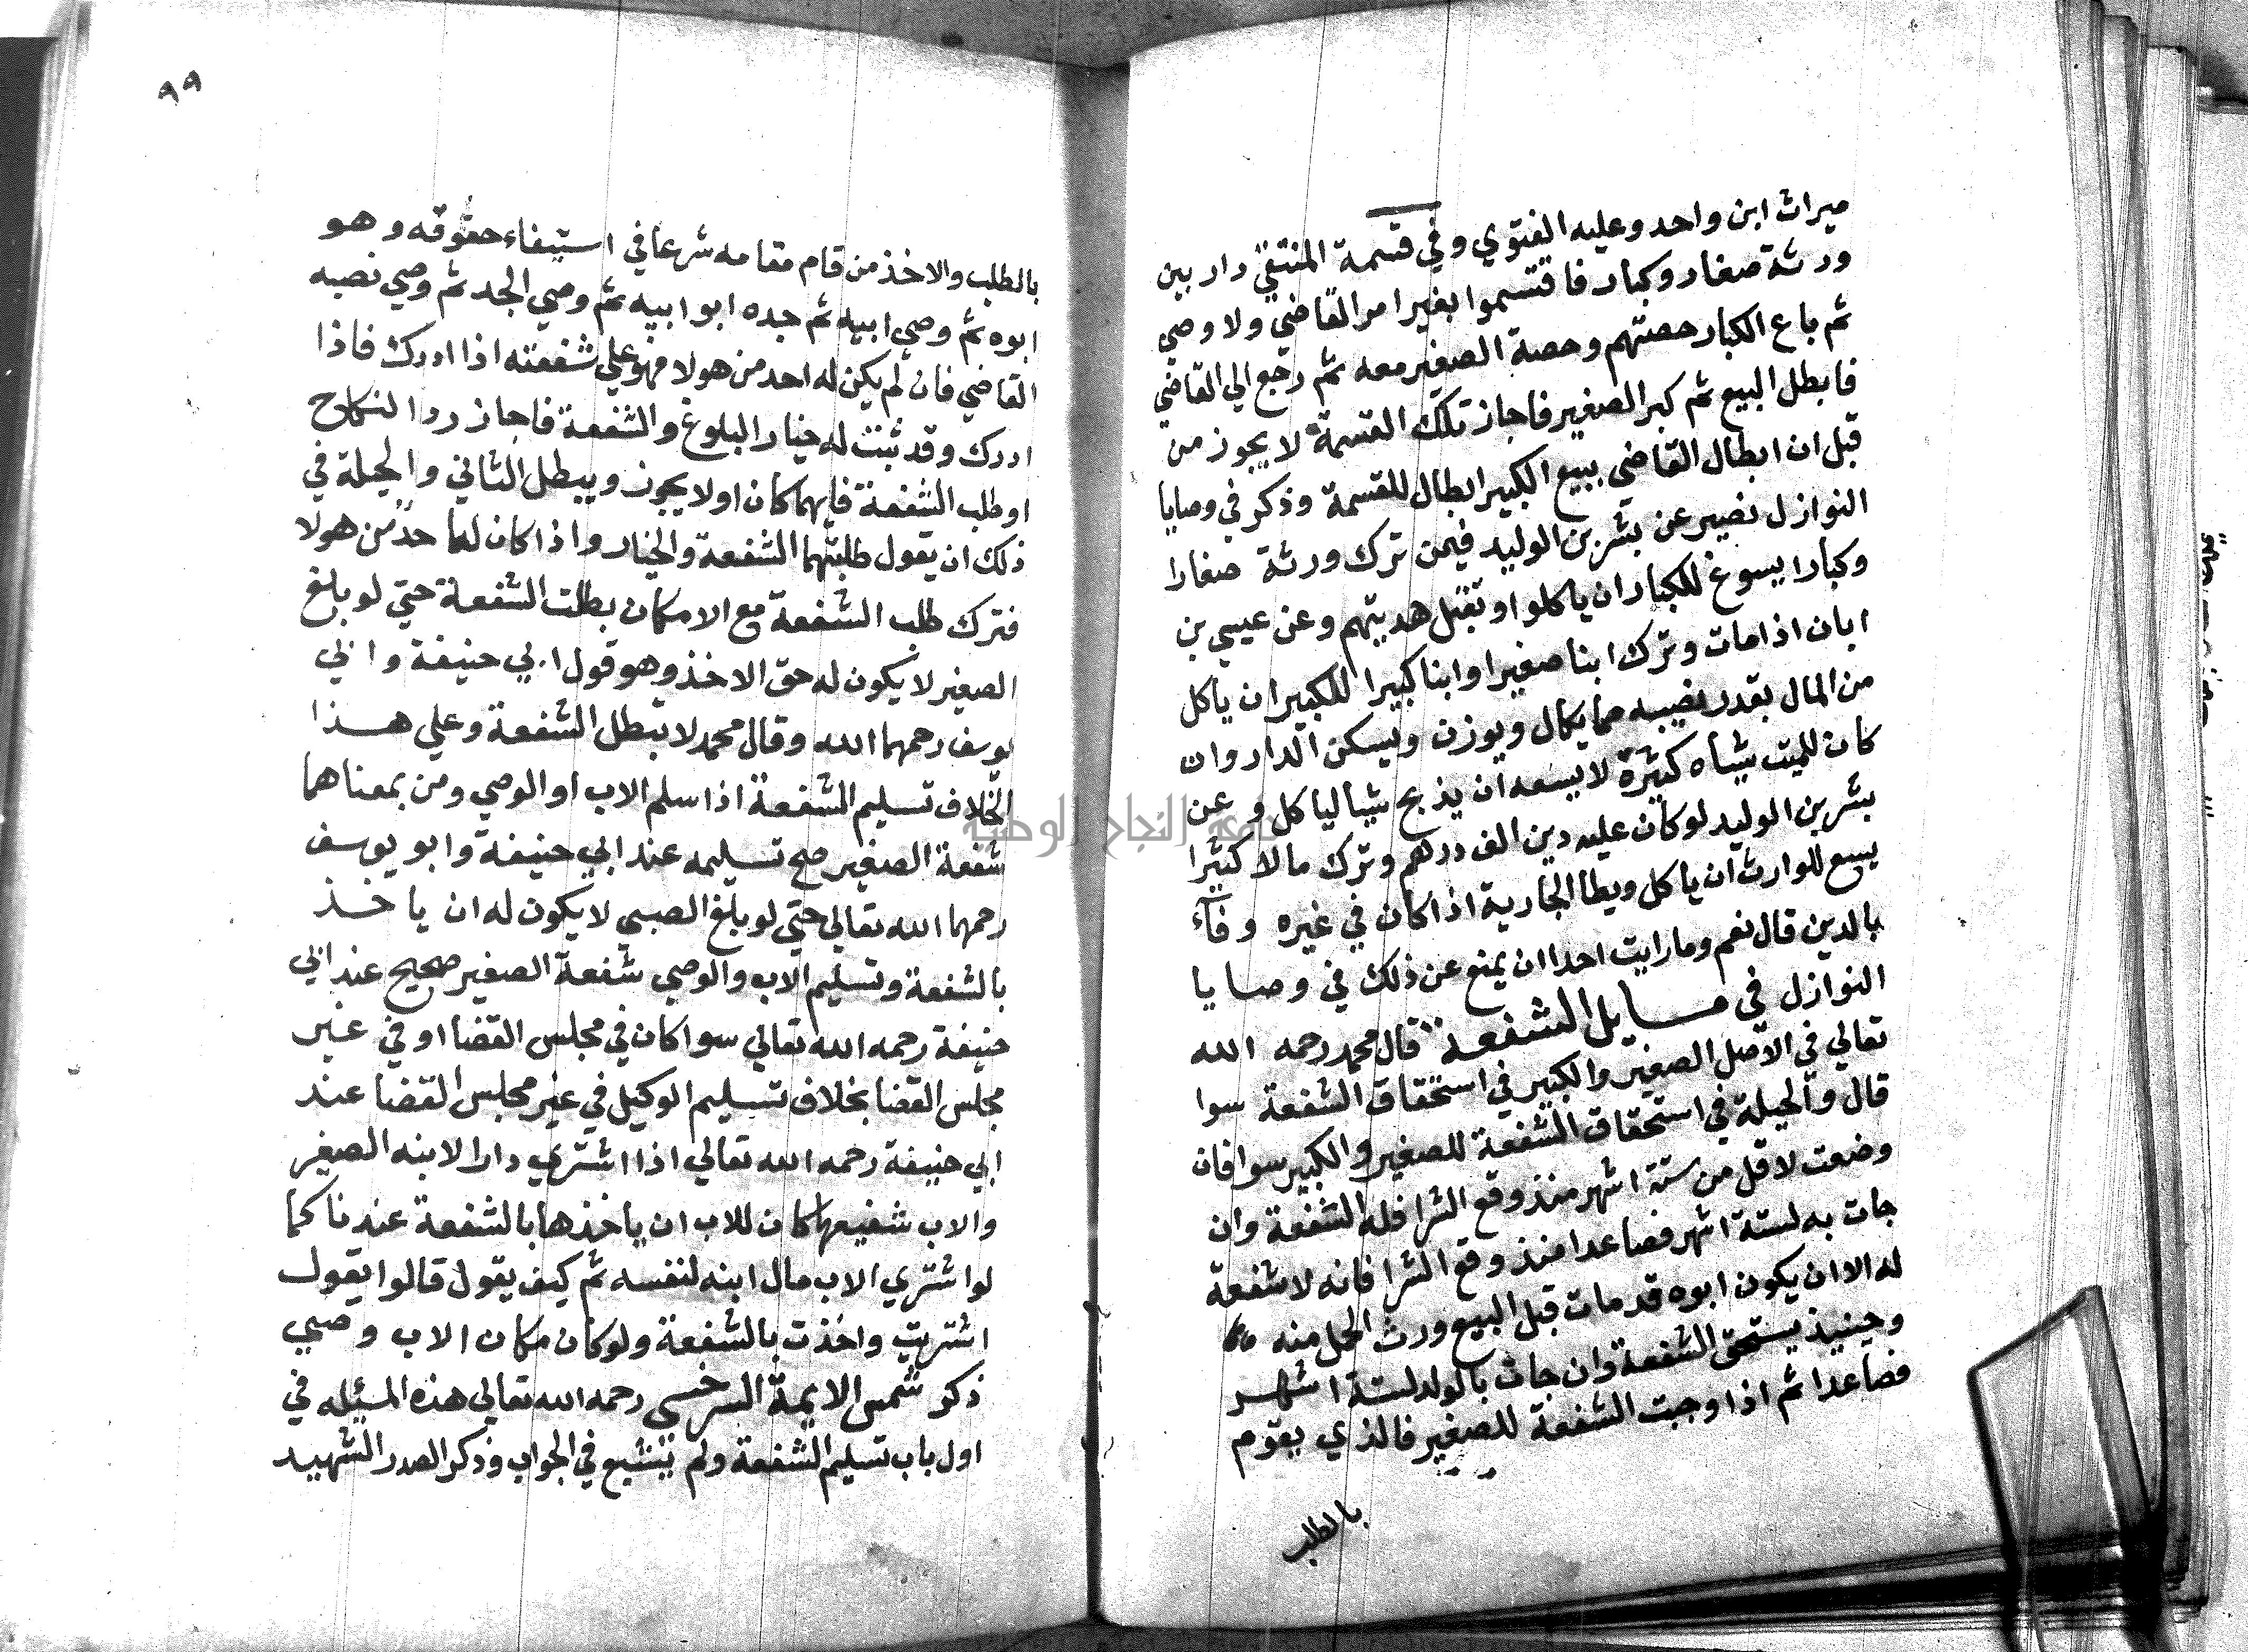 ميراث ابن واحد وعليه الفتوي وفي قسمة المنتقي دار بين
ورثة صغار وكبار فاقتسموا بغير امر القاضي ولا وصي
ثم باع الكبار حصتهم وحصة الصغير معه ثم رجع الي القاضي
فابطل البيع ثم كبر الصغير فاجاز تلك القسمة لا يجوز من
قبل ان ابطال القاضي ببيع الكبير ابطال للقسمة وذكر في وصايا
النوازل نصير عن بشر بن الوليد فيمن ترك ورثة صغارا
وكبارا يسوغ للكبار ان ياكلوا او تقبل هديتهم وعن عيسي بن
ابان اذا مات وترك ابنا صغيرا وابنا كبيرا للكبير ان ياكل
من المال بقدر نصيبه مما يكال ويوزن ويسكن الدار وان
كان للميت شياه كثيرة لا يسعه ان يذبح شيا لياكل وعن
بشر بن الوليد لو كان عليه دين الف درهم وترك مالا كثيرا
يسع للوارث ان ياكل ويطا الجارية اذا كان في غيره وفآء
بالدين قال نعم وما رايت احدا ان يمنع عن ذلك في وصايا
النوازل في مسايل الشفعة قال محمد رحمه الله
تعالي في الاصل الصغير والكبير في استحقاق الشفعة سوا
قال والحيلة في استحقاق الشفعة للصغير والكبير سوا فان
وضعت لاقل من ستة اشهر منذ وقع الشرا فله الشفعة وان
جات به لستة اشهر فصاعدا منذ وقع الشرا فانه لا شفعة
له الا ان يكون ابوه قد مات قبل البيع وورث الحمل منه
وحينيذ يستحق الشفعة وان جات بالولد لستة اشهر
فصاعدا ثم اذا وجبت الشفعة للصغير فالذي يقوم
بالطلب
٩٩
بالطلب والاخذ من قام مقامه شرعا في استيفاء حقوقه وهو
ابوه ثم وصي ابيه ثم جده ابو ابيه ثم وصي الجد ثم وصي نصبه
القاضي فان لم يكن له احد من هولا فهو علي شفعته اذا ادرك فاذا
ادرك وقد ثبت له خيار البلوغ والشفعة فاجاز رد النكاح
او طلب الشفعة فايهما كان اولا يجوز ويبطل الثاني والحيلة في
ذلك ان يقول طلبتهما الشفعة والخيار واذا كان له احد من هولا
فترك طلب الشفعة مع الامكان بطلت الشفعة حتي لو بلغ
الصغير لا يكون له حق الاخذ وهو قول ابي حنيفة وابي
يوسف رحمهما الله وقال محمد لا تبطل الشفعة وعلي هذا
الخلاف تسليم الشفعة اذا سلم الاب او الوصي ومن بمعناهما
شفعة الصغير صح تسليمه عند ابي حنيفة وابو يوسف
رحمهما الله تعالي حتي لو بلغ الصبي لا يكون له ان ياخذ
بالشفعة وتسليم الاب والوصي شفعة الصغير صحيح عند ابي
حنيفة رحمه الله تعالي سوا كان في مجلس القضا او في غير
مجلس القضا بخلاف تسليم الوكيل في غير مجلس القضا عند
ابي حنيفة رحمه الله تعالي اذا اشتري دارا لابنه الصغير
والاب شفيعها كان للاب ان ياخذها بالشفعة عندنا كما
لو اشتري الاب مال ابنه لنفسه ثم كيف يقول قالوا يقول
اشتريت واخذت بالشفعة ولو كان مكان الاب وصي
ذكر شمس الايمة السرخسي رحمه الله تعالي هذه المسئله في
اول باب تسليم الشفعة ولم يشبع في الجواب وذكر الصدر الشهيد
جامعة النجاح الوطنية